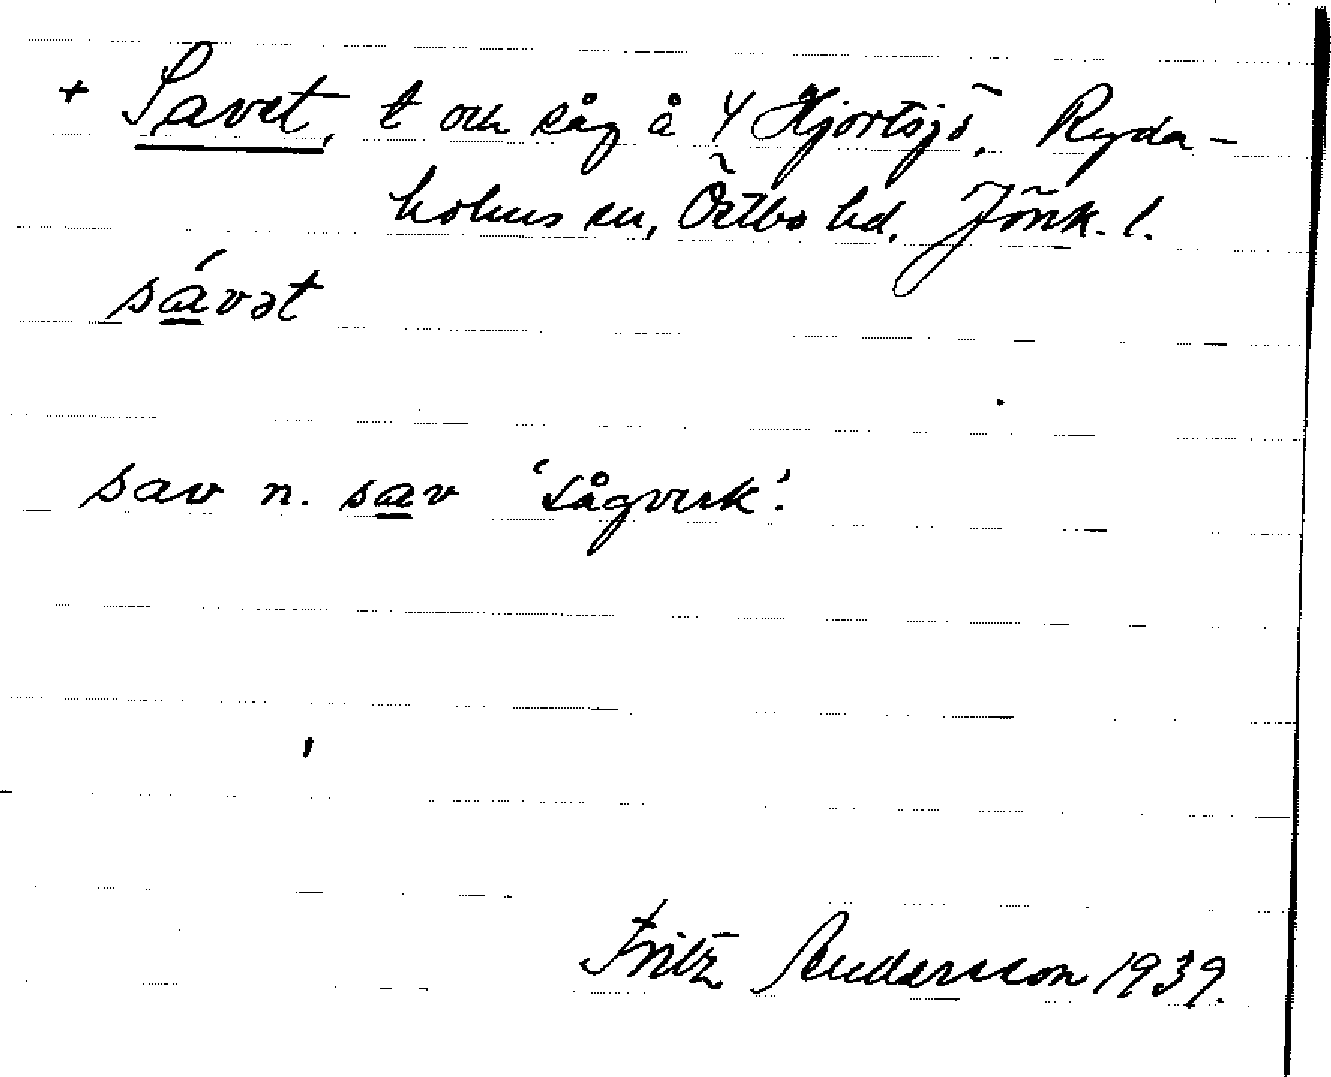 + Savet, t och såg å Y Hjortsjö, Ryda-
holms sn, Östbo hd. Jönk. l.
sávət
sav n. sav 'sågverk'.
Fritz Andersson 1939.